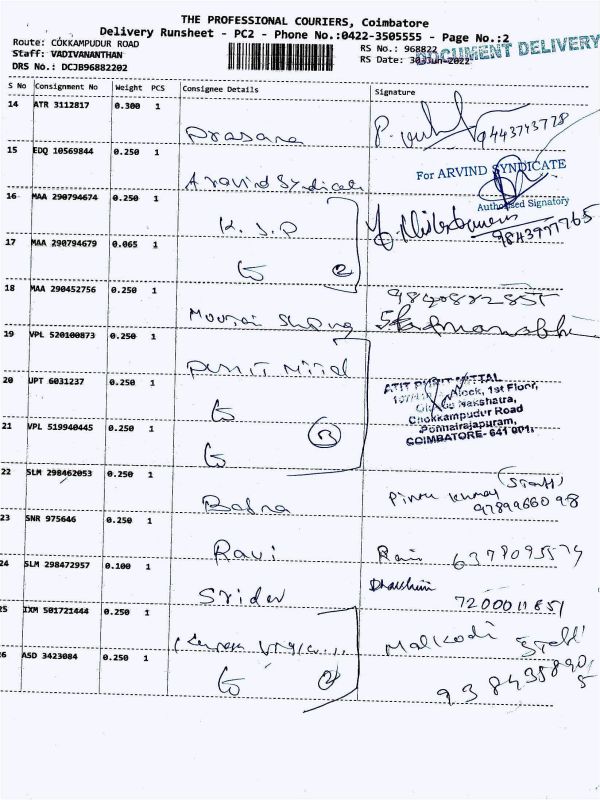 THE PROFESSIONAL COURIERS, Coimbatore
Delivery Runsheet - PC2 - Phone No.:0422-3505555 - Page No.:2
Route: COKKAMPUDUR ROAD
Staff: VADIVANANTHAN
DRS No.: DCJB96882202
RS No.: 968822
RS Date: 30-Jun-2022
DOCUMENT DELIVERY
S No Consignment No Weight PCS Consignee Details Signature
14 ATR 3112817 0.300 1
Prasana 9443743778
15 EDQ 10569844 0.250 1
Aravind Syndicate
For ARVIND SYNDICATE
Authorised Signatory
16 MAA 290794674 0.250 1
K.S.P
9843977765
17 MAA 290794679 0.065 1
2
18 MAA 290452756 0.250 1
19 VPL 520100873 0.250 1
20 UPT 6031237 0.250 1
ATIT PUNIT MITTAL
Block, 1st Floor,
Nakshatra,
Chokkampudur Road
Ponnairajapuram,
COIMBATORE- 641 001.
21 VPL 519940445 0.250 1
22 SLM 298462053 0.250 1
(Staff)
9789966098
23 SNR 975646 0.250 1
Ravi Ravi 6378095574
24 SLM 298472957 0.100 1
Sridev Dharshini
7200011851
25 IXM 501721444 0.250 1
Malkodi Staff
26 ASD 3423084 0.250 1
2